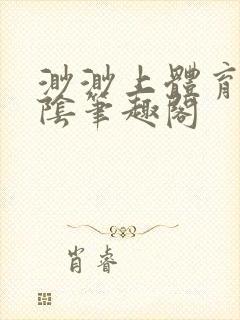 渺渺上體育
陰筆趣閣
肖睿